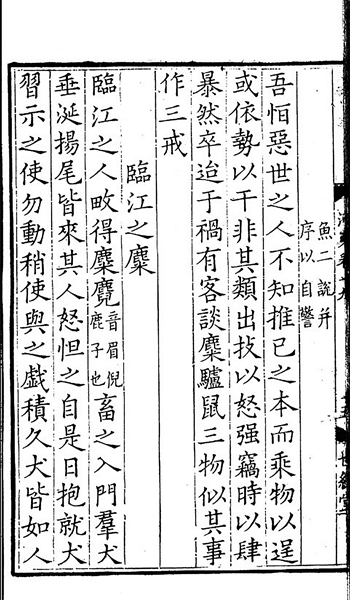 世綵堂
魚二說并
序以自警
吾恒惡世之人不知推己之本而乘物以逞
或依勢以干非其類出技以怒强竊時以肆
暴然卒迨于禍有客談麋驢鼠三物似其事
作三戒
臨江之麋
臨江之人畋得麋麑音眉倪鹿子也畜之入門羣犬
垂涎揚尾皆來其人怒怛之自是日抱就犬
習示之使勿動稍使與之戲積久犬皆如人